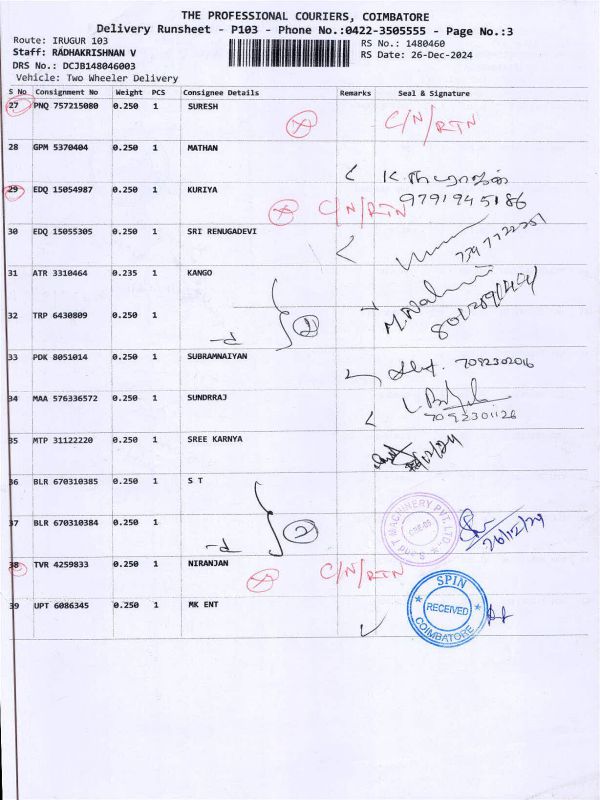 THE PROFESSIONAL COURIERS, COIMBATORE
Delivery Runsheet - P103 - Phone No.:0422-3505555 - Page No.:3
Route: IRUGUR 103 RS No.: 1480460
Staff: RADHAKRISHNAN V RS Date: 26-Dec-2024
DRS No.: DCJB148046003
Vehicle: Two Wheeler Delivery
S No Consignment No Weight PCS Consignee Details Remarks Seal & Signature
27 PNQ 757215080 0.250 1 SURESH C/N/RTN
28 GPM 5370404 0.250 1 MATHAN
9791945186
29 EDQ 15054987 0.250 1 KURIYA C/N/RTN
30 EDQ 15055305 0.250 1 SRI RENUGADEVI
31 ATR 3310464 0.235 1 KANGO
32 TRP 6430809 0.250 1
33 PDK 8051014 0.250 1 SUBRAMNAIYAN 7092302016
34 MAA 576336572 0.250 1 SUNDRRAJ
7092301126
35 MTP 31122220 0.250 1 SREE KARNYA
36 BLR 670310385 0.250 1 S T
37 BLR 670310384 0.250 1 26/12/24
38 TVR 4259833 0.250 1 NIRANJAN C/N/RTN
39 UPT 6086345 0.250 1 MK ENT
SPIN
RECEIVED
COIMBATORE